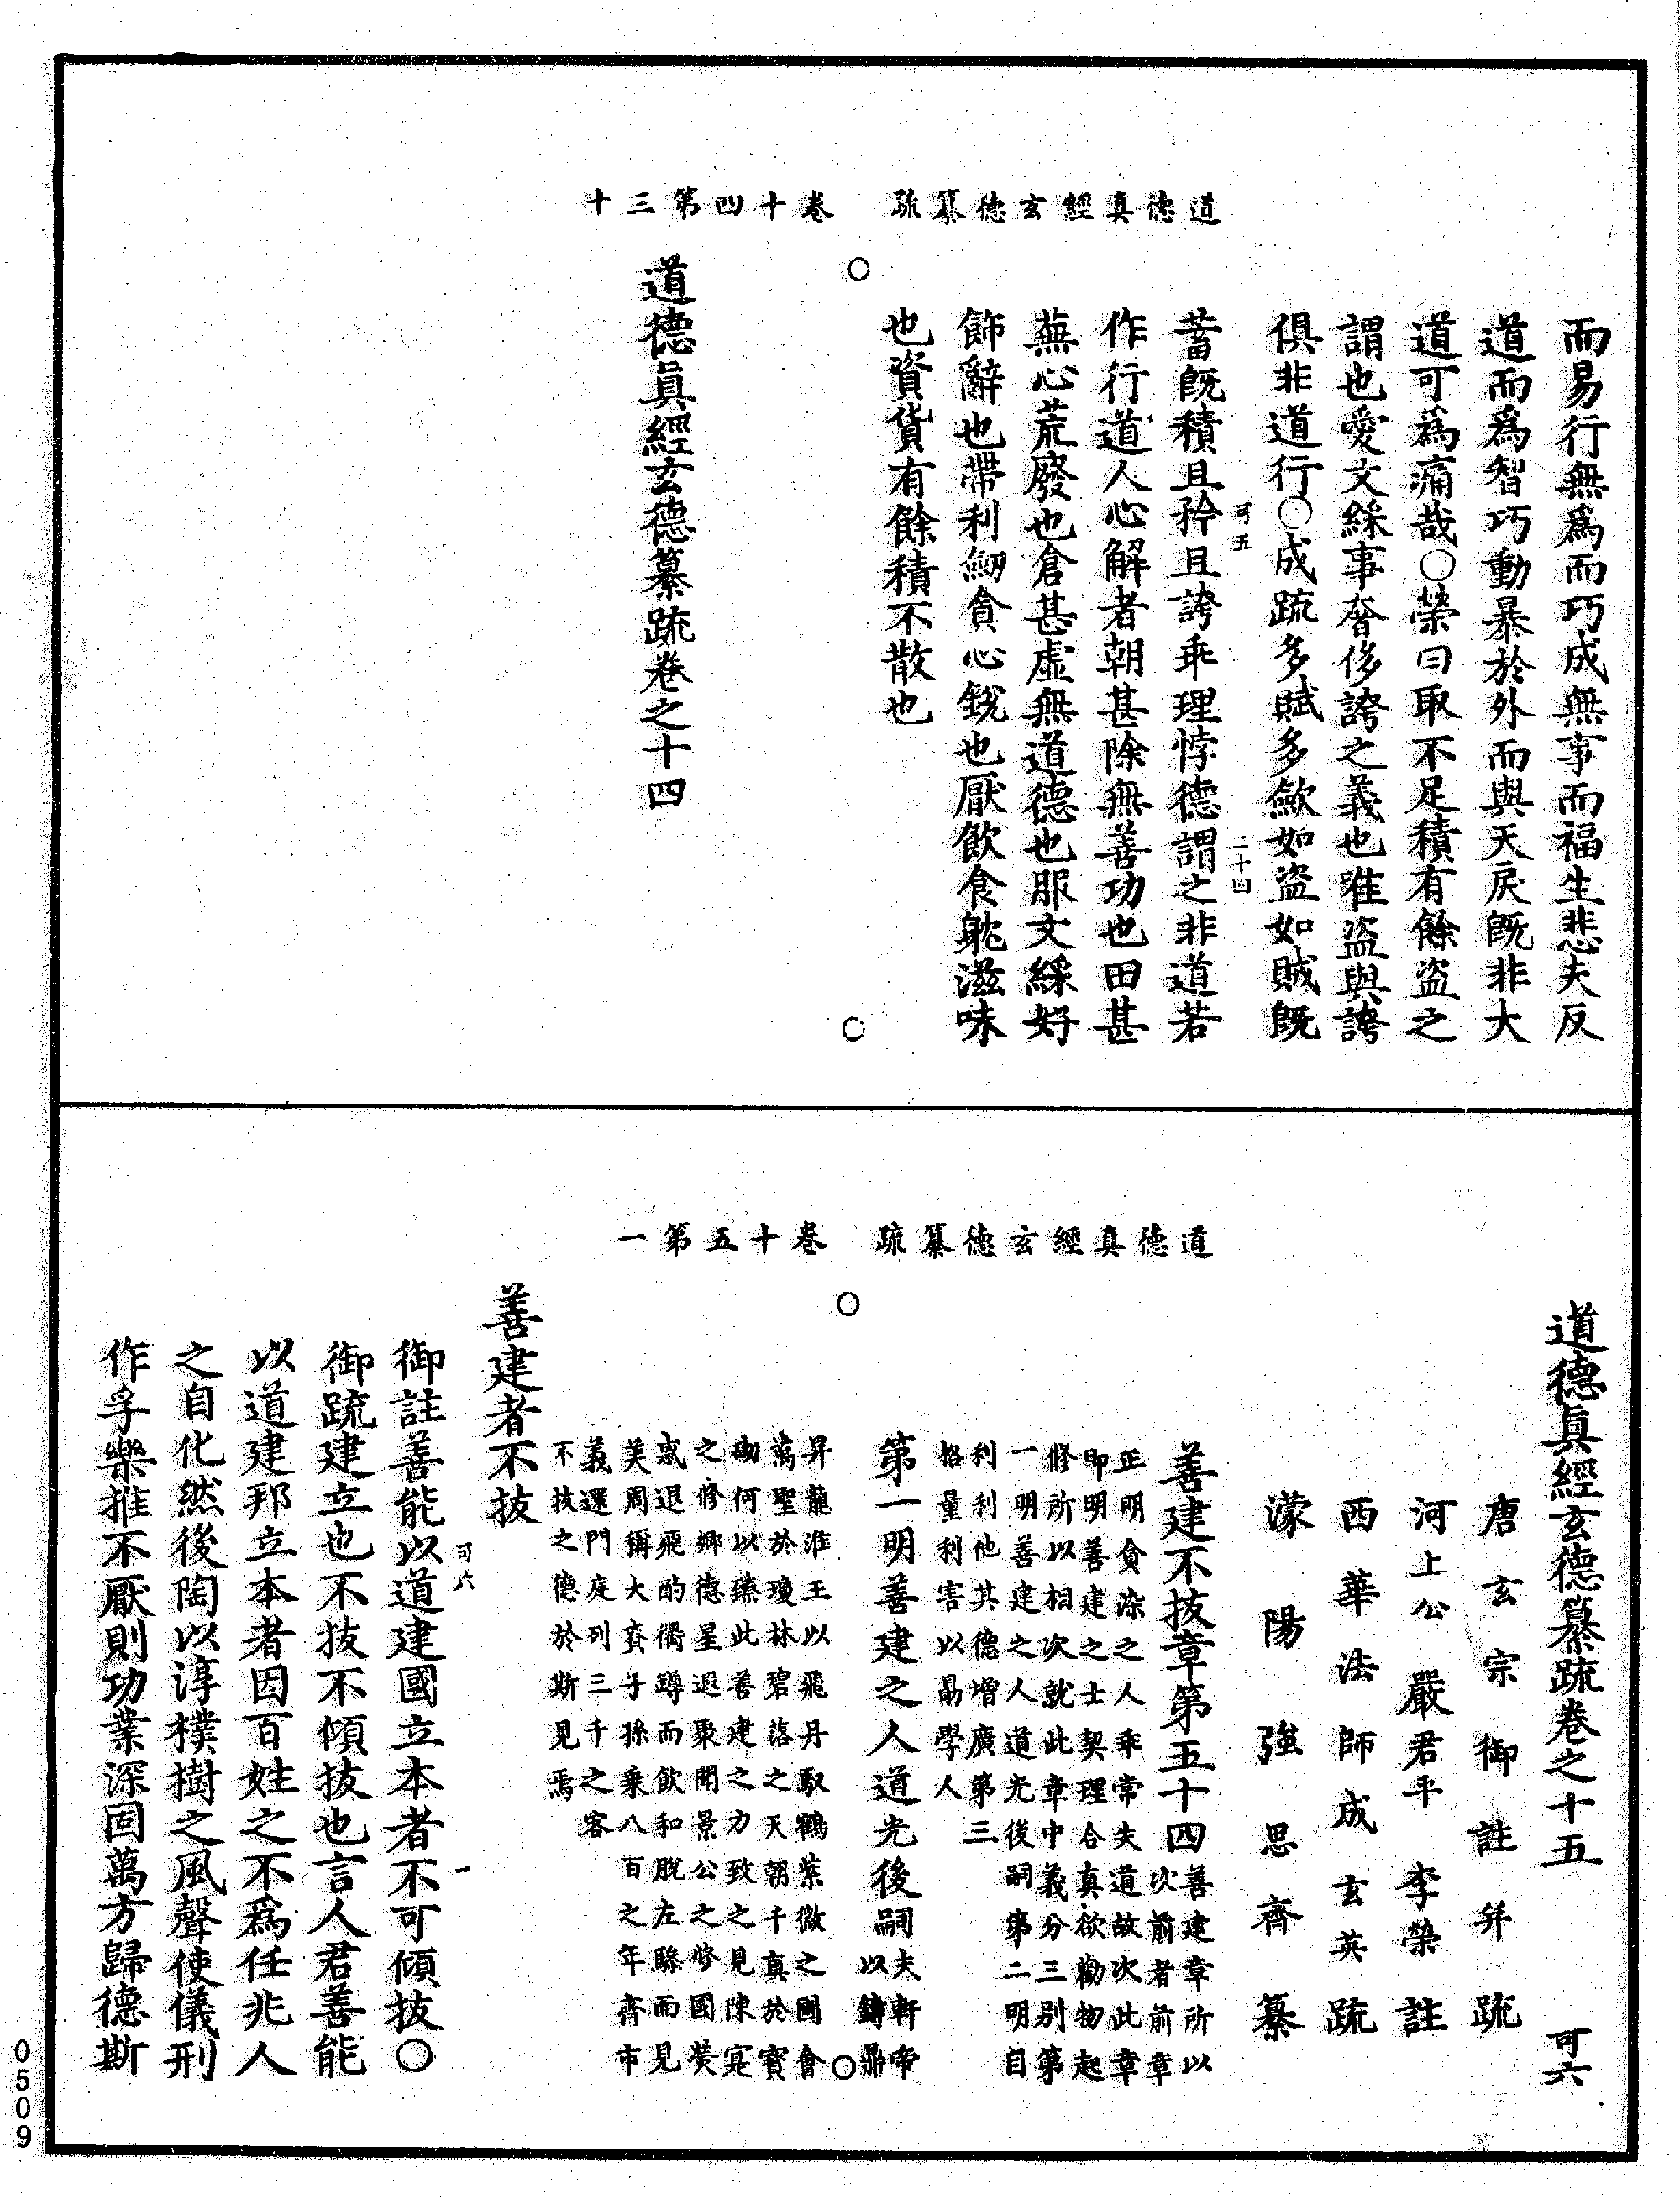 道德真經玄德纂疏　卷十四第三十
而易行無爲而巧成無事而福生悲夫反
道而爲智巧動暴於外而與天戾旣非大
道可爲痛哉○榮曰取不足積有餘盜之
謂也愛文綵事奢侈誇之義也唯盜與誇
俱非道行○成疏多賦多斂如盜如賊旣
可五　二十四
蓄旣積且矜且誇乖理悖德謂之非道若
作行道人心解者朝甚除無善功也田甚
蕪心荒廢也倉甚虛無道德也服文綵好
飾辭也帶利劒貪心銳也厭飲食躭滋味
也資貨有餘積不散也
道德眞經玄德纂疏卷之十四
道德真經玄德纂疏　卷十五第一
道德眞經玄德纂疏卷之十五　可六
唐玄宗御註幷疏
河上公　嚴君平　李榮註
西華法師成玄英疏
濛陽強思齊纂
善建不拔章第五十四
善建章所以
次前者前章
正明貪染之人乖常失道故次此章
即明善建之士契理合真欲勸物起
修所以相次就此章中義分三別第
一明善建之人道光後嗣第二明自
利利他其德增廣第三
格量利害以勗學人
第一明善建之人道光後嗣
夫軒帝
以鑄鼎
昇龍淮王以飛丹馭鶴紫微之圃會
萬聖於瓊林碧落之天朝千真於寶
砌何以臻此善建之力致之見陳寔
之修鄉德星遐聚開景公之修國熒
惑退飛酌衢蹲而飲和脫左驂而見
美周稱大賚子孫乘八百之年齊市
義還門庭列三千之客
不拔之德於斯見焉
善建者不拔
御註善能以道建國立本者不可傾拔○
可六　一
御疏建立也不拔不傾拔也言人君善能
以道建邦立本者因百姓之不爲任兆人
之自化然後陶以淳樸樹之風聲使儀刑
作孚樂推不厭則功業深固萬方歸德斯
0509